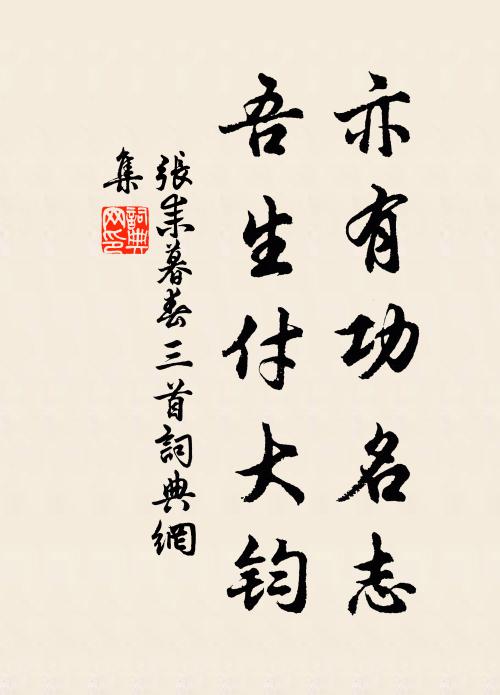 亦有功名志
吾生付大钧
張耒暮春三首詞典網
集
詞典
网印